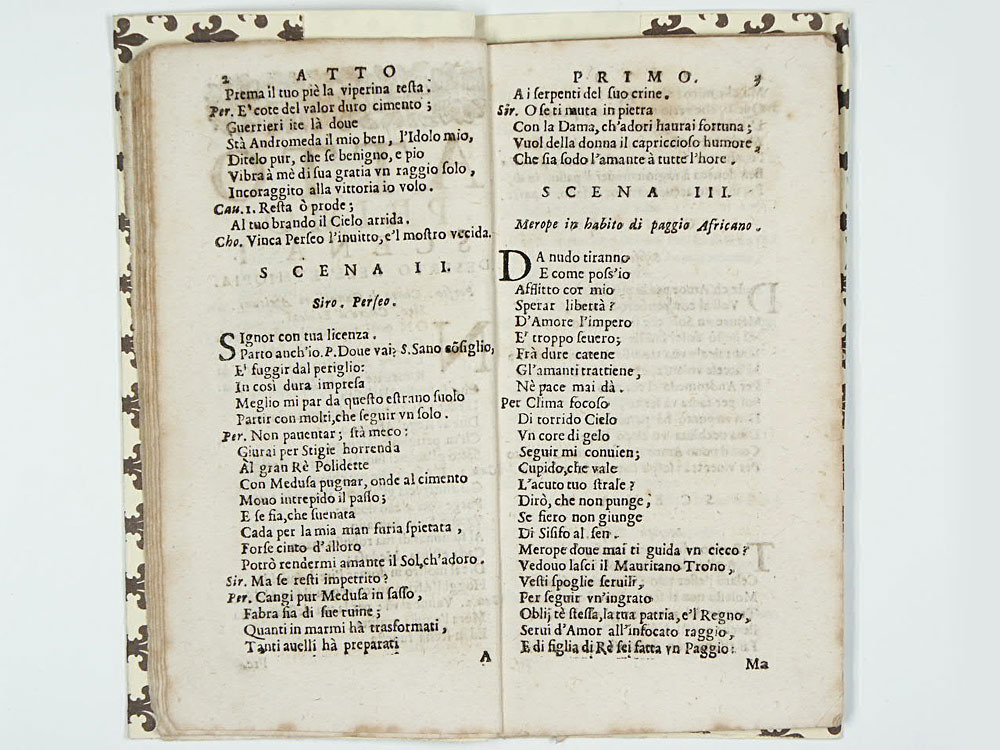 2 ATTO
Prema il tuo piè la viperina testa.
Per. E' cote del valor duro cimento;
Guerrieri ite là doue
Stà Andromeda il mio ben, l'Idolo mio,
Ditelo pur, che se benigno, e pio
Vibra à mè di sua gratia vn raggio solo,
Incoraggito alla vittoria io volo.
Cau. 1. Resta ò prode;
Al tuo brando il Cielo arrida.
Cho. Vinca Perseo l'inuitto, e'l mostro vccida.
SCENA II.
Siro. Perseo.
SIgnor con tua licenza.
Parto anch'io. P. Doue vai? S. Sano cōsiglio,
E' fuggir dal periglio:
In così dura impresa
Meglio mi par da questo estrano suolo
Partir con molti, che seguir vn solo.
Per. Non pauentar; stà meco:
Giurai per Stigie horrenda
Al gran Rè Polidette
Con Medusa pugnar, onde al cimento
Mouo intrepido il passo;
E se fia, che suenata
Cada per la mia man furia spietata,
Forse cinto d'alloro
Potrò rendermi amante il Sol, ch'adoro.
Sir. Ma se resti impetrito?
Per. Cangi pur Medusa in sasso,
Fabra sia di sue ruine;
Quanti in marmi hà trasformati,
Tanti auelli hà preparati
A
PRIMO. 3
A i serpenti del suo crine.
Sir. O se ti muta in pietra
Con la Dama, ch'adori haurai fortuna;
Vuol della donna il capriccioso humore,
Che sia sodo l'amante à tutte l'hore.
SCENA III.
Merope in habito di paggio Africano.
DA nudo tiranno
E come poss'io
Afflitto cor mio
Sperar libertà?
D'Amore l'impero
E' troppo seuero;
Frà dure catene
Gl'amanti trattiene,
Nè pace mai dà.
Per Clima focoso
Di torrido Cielo
Vn core di gelo
Seguir mi conuien;
Cupido, che vale
L'acuto tuo strale?
Dirò, che non punge,
Se fiero non giunge
Di Sisifo al sen.
Merope doue mai ti guida vn cieco?
Vedouo lasci il Mauritano Trono,
Vesti spoglie seruili,
Per seguir vn'ingrato
Oblij tè stessa, la tua patria, e'l Regno,
Serui d'Amor all'infocato raggio,
E di figlia di Rè sei fatta vn Paggio:
Ma